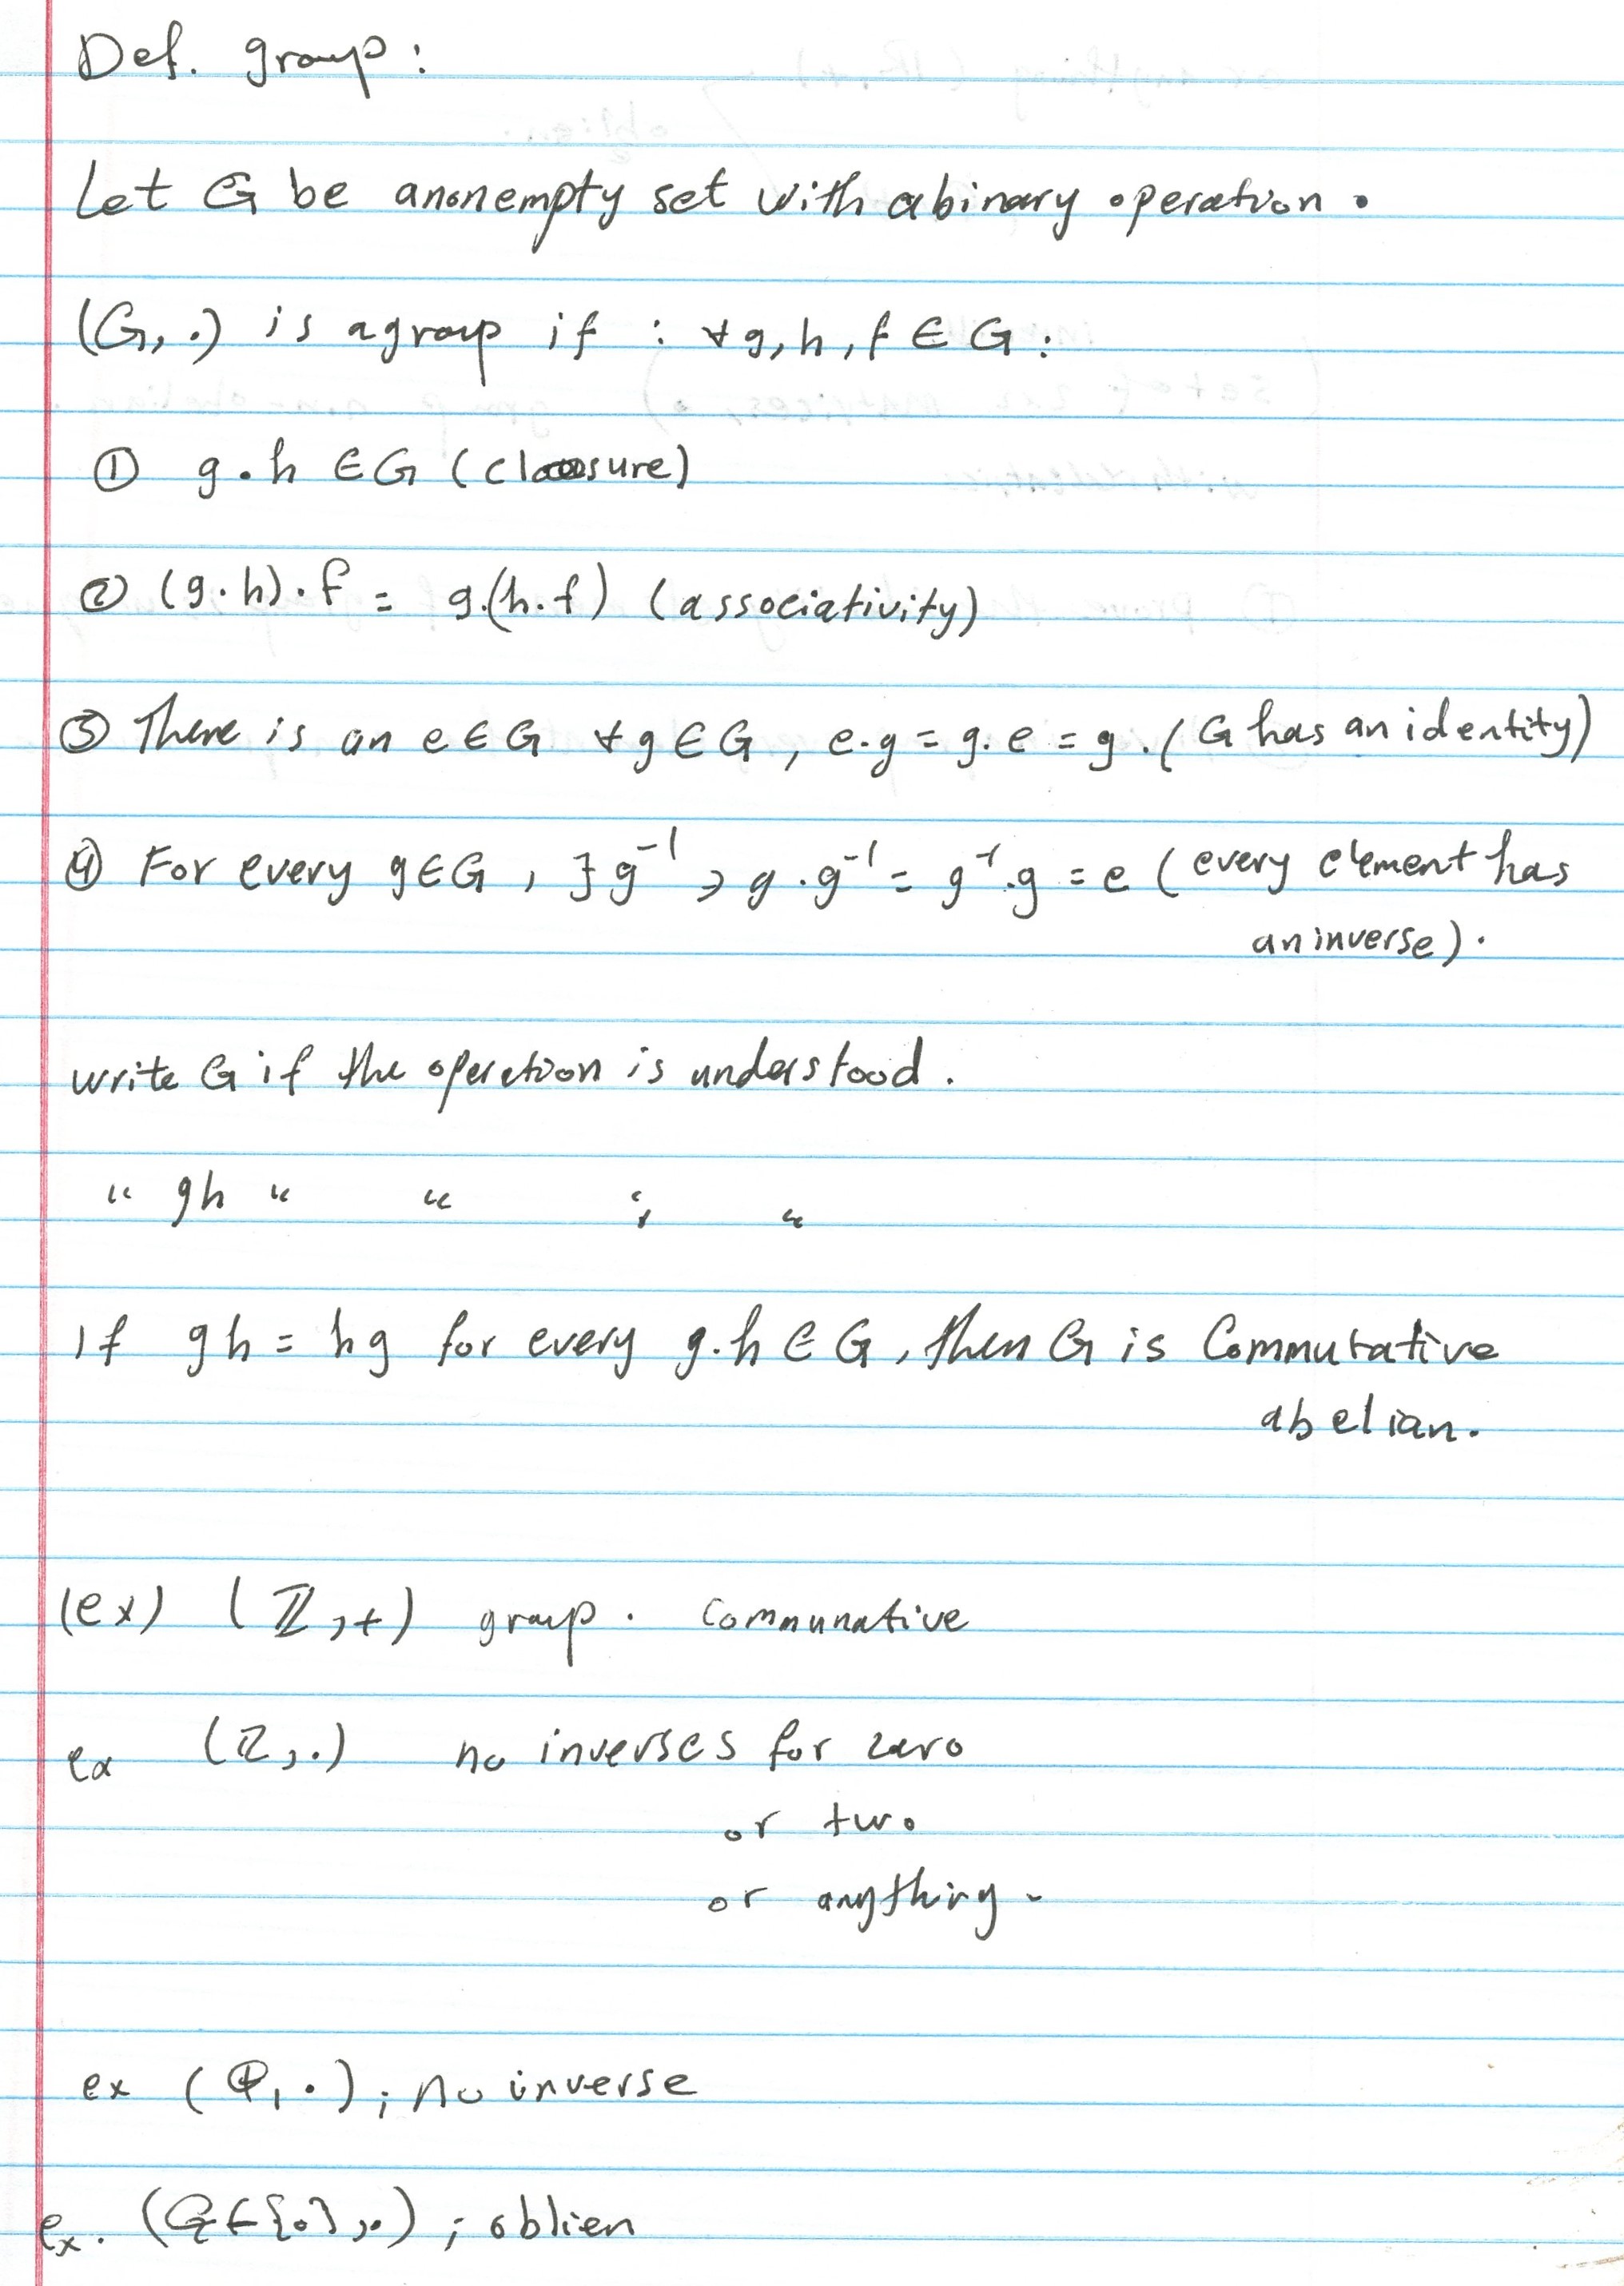 Def. group:
Let G be anonempty set with abinary operation .
(G, .) is agroup if : ∀g, h, f ∈ G :
① g . h ∈ G (closure)
② (g . h) . f = g.(h.f) (associativity)
③ There is an e ∈ G ∀g ∈ G, e.g = g.e = g . (G has an identity)
④ For every g ∈ G , ∃ g⁻¹ ∋ g . g⁻¹ = g⁻¹.g = e (every element has
an inverse).
write G if the operation is understood.
" gh " " " "
If gh = hg for every g.h ∈ G, then G is Commutative
abelian.
(ex) (ℤ, +) group. Communative
ex (ℤ, .) no inverses for zero
or two
or anything.
ex (ℚ, .) ; no inverse
ex. ( {0}, .) ; oblien